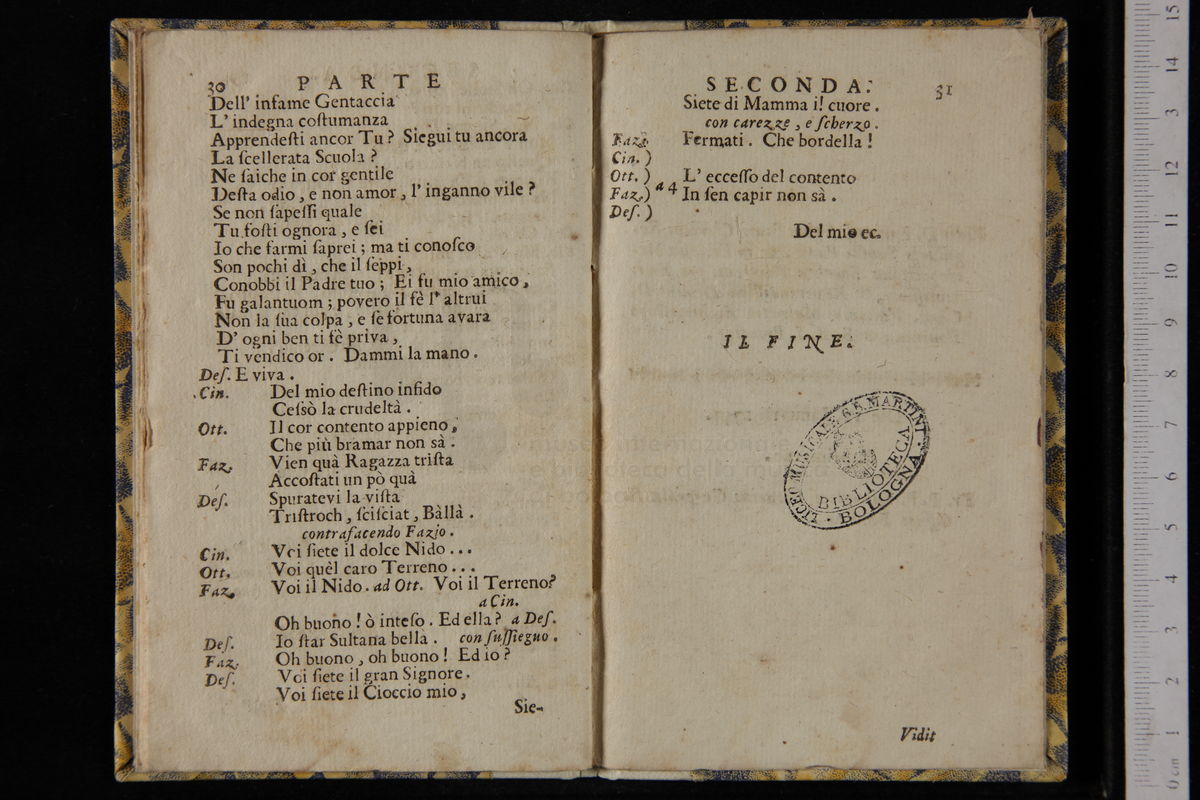 30 PARTE
Dell' infame Gentaccia
L' indegna coſtumanza
Apprendeſti ancor Tu? Siegui tu ancora
La ſcellerata Scuola?
Ne ſai che in cor gentile
Deſta odio, e non amor, l' inganno vile?
Se non ſapeſſi quale
Tu foſti ognora, e ſei
Io che farmi ſaprei; ma ti conoſco
Son pochi dì, che il ſeppi,
Conobbi il Padre tuo; Ei fu mio amico,
Fu galantuom; povero il fè l' altrui
Non la ſua colpa, e ſe fortuna avara
D' ogni ben ti fè priva,
Ti vendico or. Dammi la mano.
Deſ. E viva.
Cin. Del mio deſtino infido
Ceſsò la crudeltà.
Ott. Il cor contento appieno,
Che più bramar non sà.
Faz. Vien quà Ragazza triſta
Accoſtati un pò quà
Deſ. Spuratevi la viſta
Triſtroch, ſciſciat, Bàllà.
contrafacendo Fazio.
Cin. Voi ſiete il dolce Nido...
Ott. Voi quèl caro Terreno...
Faz. Voi il Nido. ad Ott. Voi il Terreno?
a Cin.
Oh buono! ò inteſo. Ed ella? a Deſ.
Deſ. Io ſtar Sultana bella. con ſuſſieguo.
Faz. Oh buono, oh buono! Ed io?
Deſ. Voi ſiete il gran Signore.
Voi ſiete il Cioccio mio,
Sie-
SECONDA. 31
Siete di Mamma il cuore.
con carezze, e ſcherzo.
Faz. Fermati. Che bordella!
Cin. )
Ott. ) L' ecceſſo del contento
Faz. ) a 4 In ſen capir non sà.
Deſ. )
Del mio ec.
IL FINE.
LICEO MUSICALE G.B. MARTINI
BIBLIOTECA
BOLOGNA
Vidit
0 cm 1 2 3 4 5 6 7 8 9 10 11 12 13 14 15